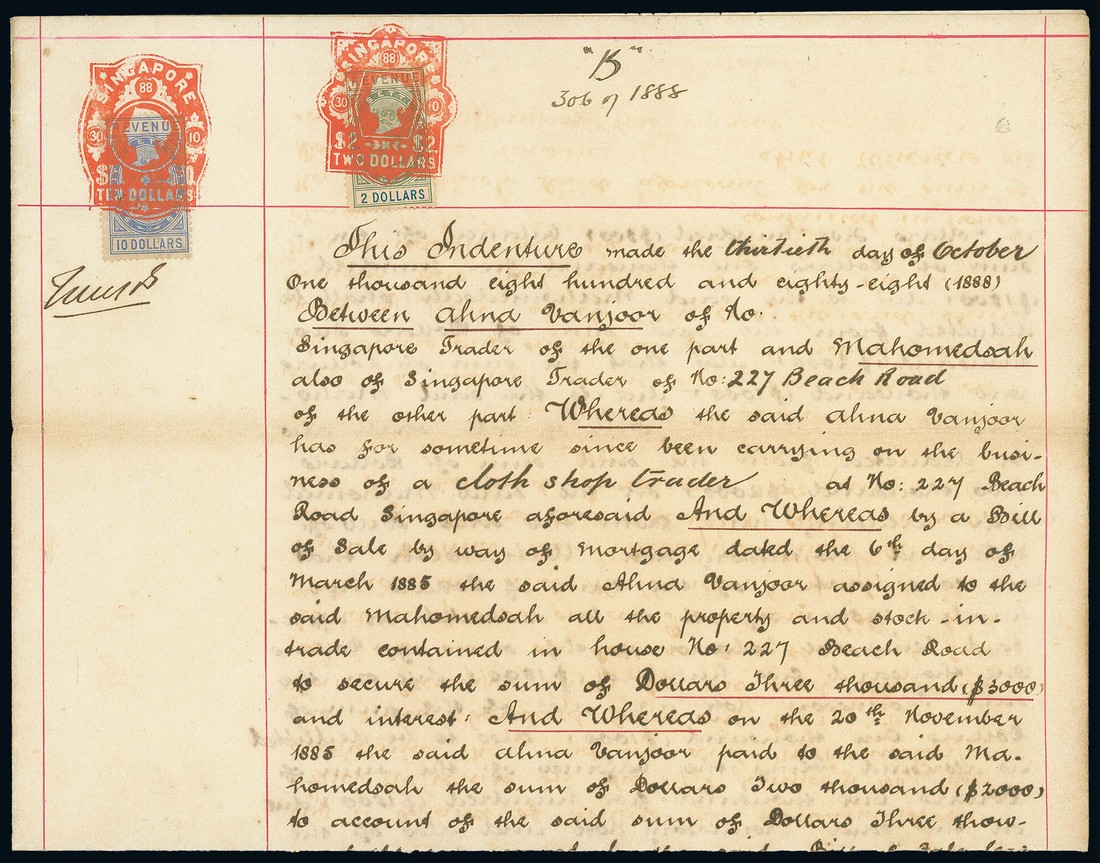 SINGAPORE
88
30 10
REVENUE
TEN DOLLARS
10 DOLLARS
SINGAPORE
88
REVENUE
30 10
SETT
$2 $2
TWO DOLLARS
2 DOLLARS
"B"
306 of 1888
This Indenture made the thirtieth day of October
One thousand eight hundred and eighty-eight (1888)
Between Ahna Vanjoor of No:
Singapore Trader of the one part and Mahomedsah
also of Singapore Trader of No: 227 Beach Road
of the other part Whereas the said Ahna Vanjoor
has for sometime since been carrying on the busi-
ness of a cloth shop trader at No: 227 Beach
Road Singapore aforesaid And Whereas by a Bill
of Sale by way of Mortgage dated the 6th day of
March 1885 the said Ahna Vanjoor assigned to the
said Mahomedsah all the property and stock-in-
trade contained in house No: 227 Beach Road
to secure the sum of Dollars Three thousand ($3000)
and interest: And Whereas on the 20th November
1885 the said Ahna Vanjoor paid to the said Ma-
homedsah the sum of Dollars Two thousand ($2000)
to account of the said sum of Dollars Three thou-